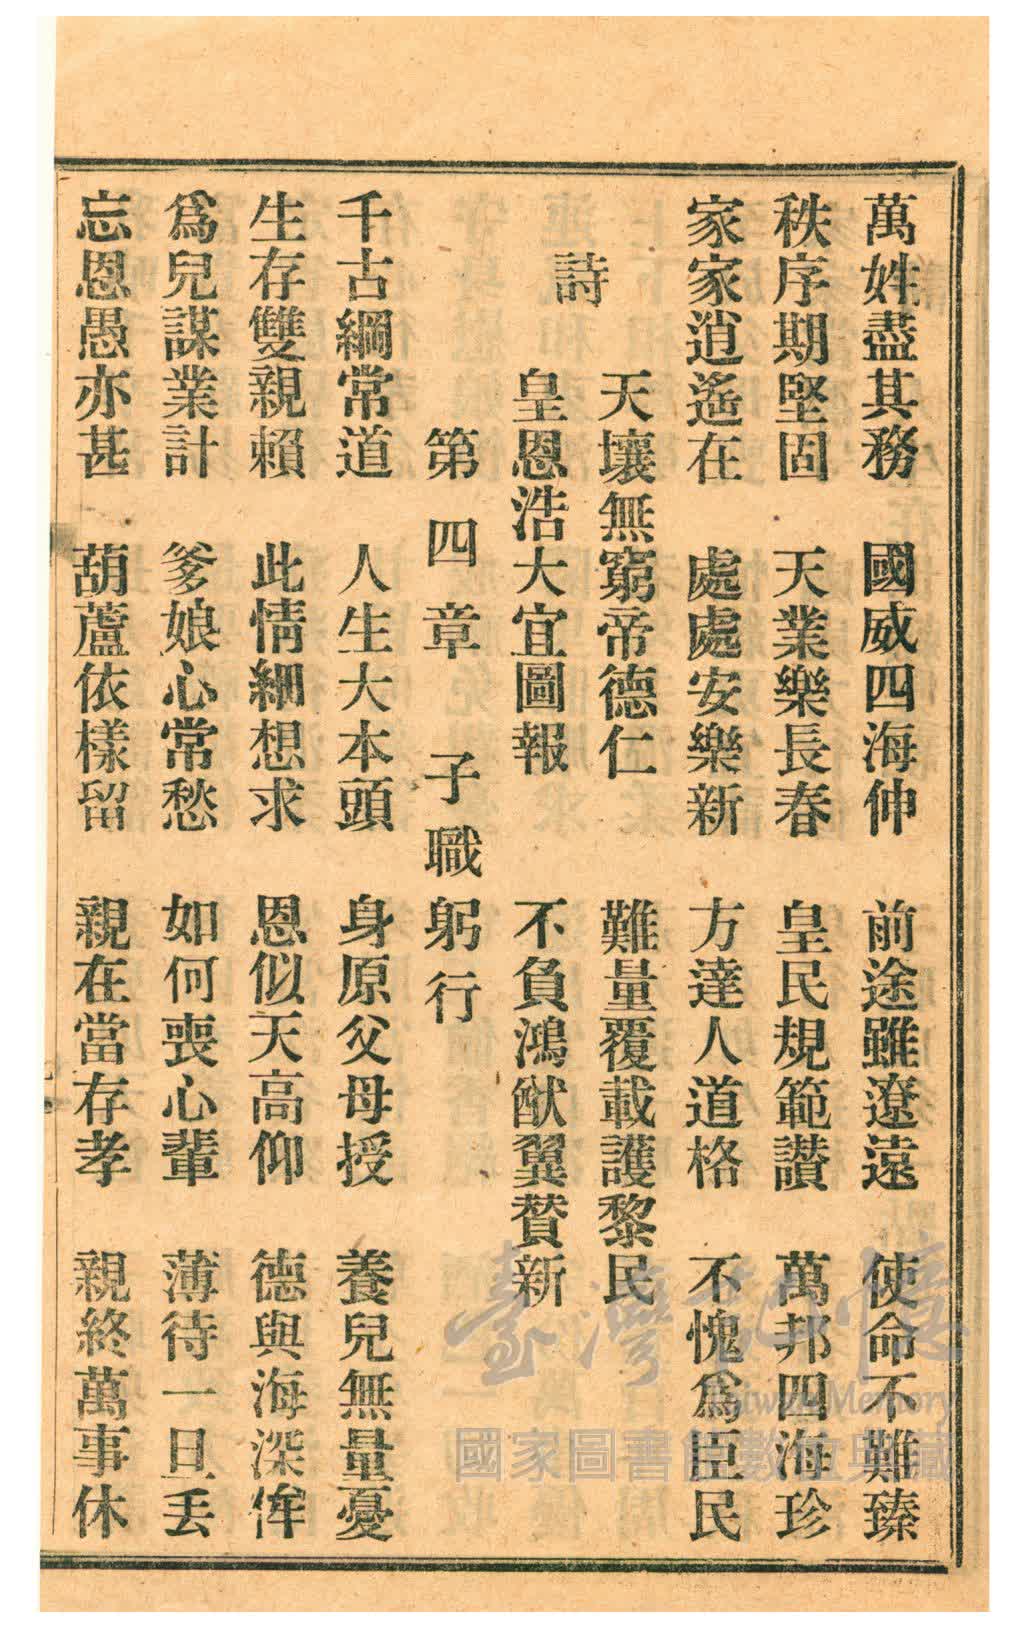 萬姓盡其務　國威四海伸　前途雖遼遠　使命不難臻
秩序期堅固　天業樂長春　皇民規範讚　萬邦四海珍
家家逍遙在　處處安樂新　方達人道格　不愧爲臣民
詩
天壤無窮帝德仁　難量覆載護黎民
皇恩浩大宜圖報　不負鴻猷翼贊新
第四章　子職躬行
千古綱常道　人生大本頭　身原父母授　養兒無量憂
生存雙親賴　此情細想求　恩似天高仰　德與海深侔
爲兒謀業計　爹娘心常愁　如何喪心輩　薄待一旦丟
忘恩愚亦甚　葫蘆依樣留　親在當存孝　親終萬事休
臺灣記憶
Taiwan Memory
國家圖書館數位典藏